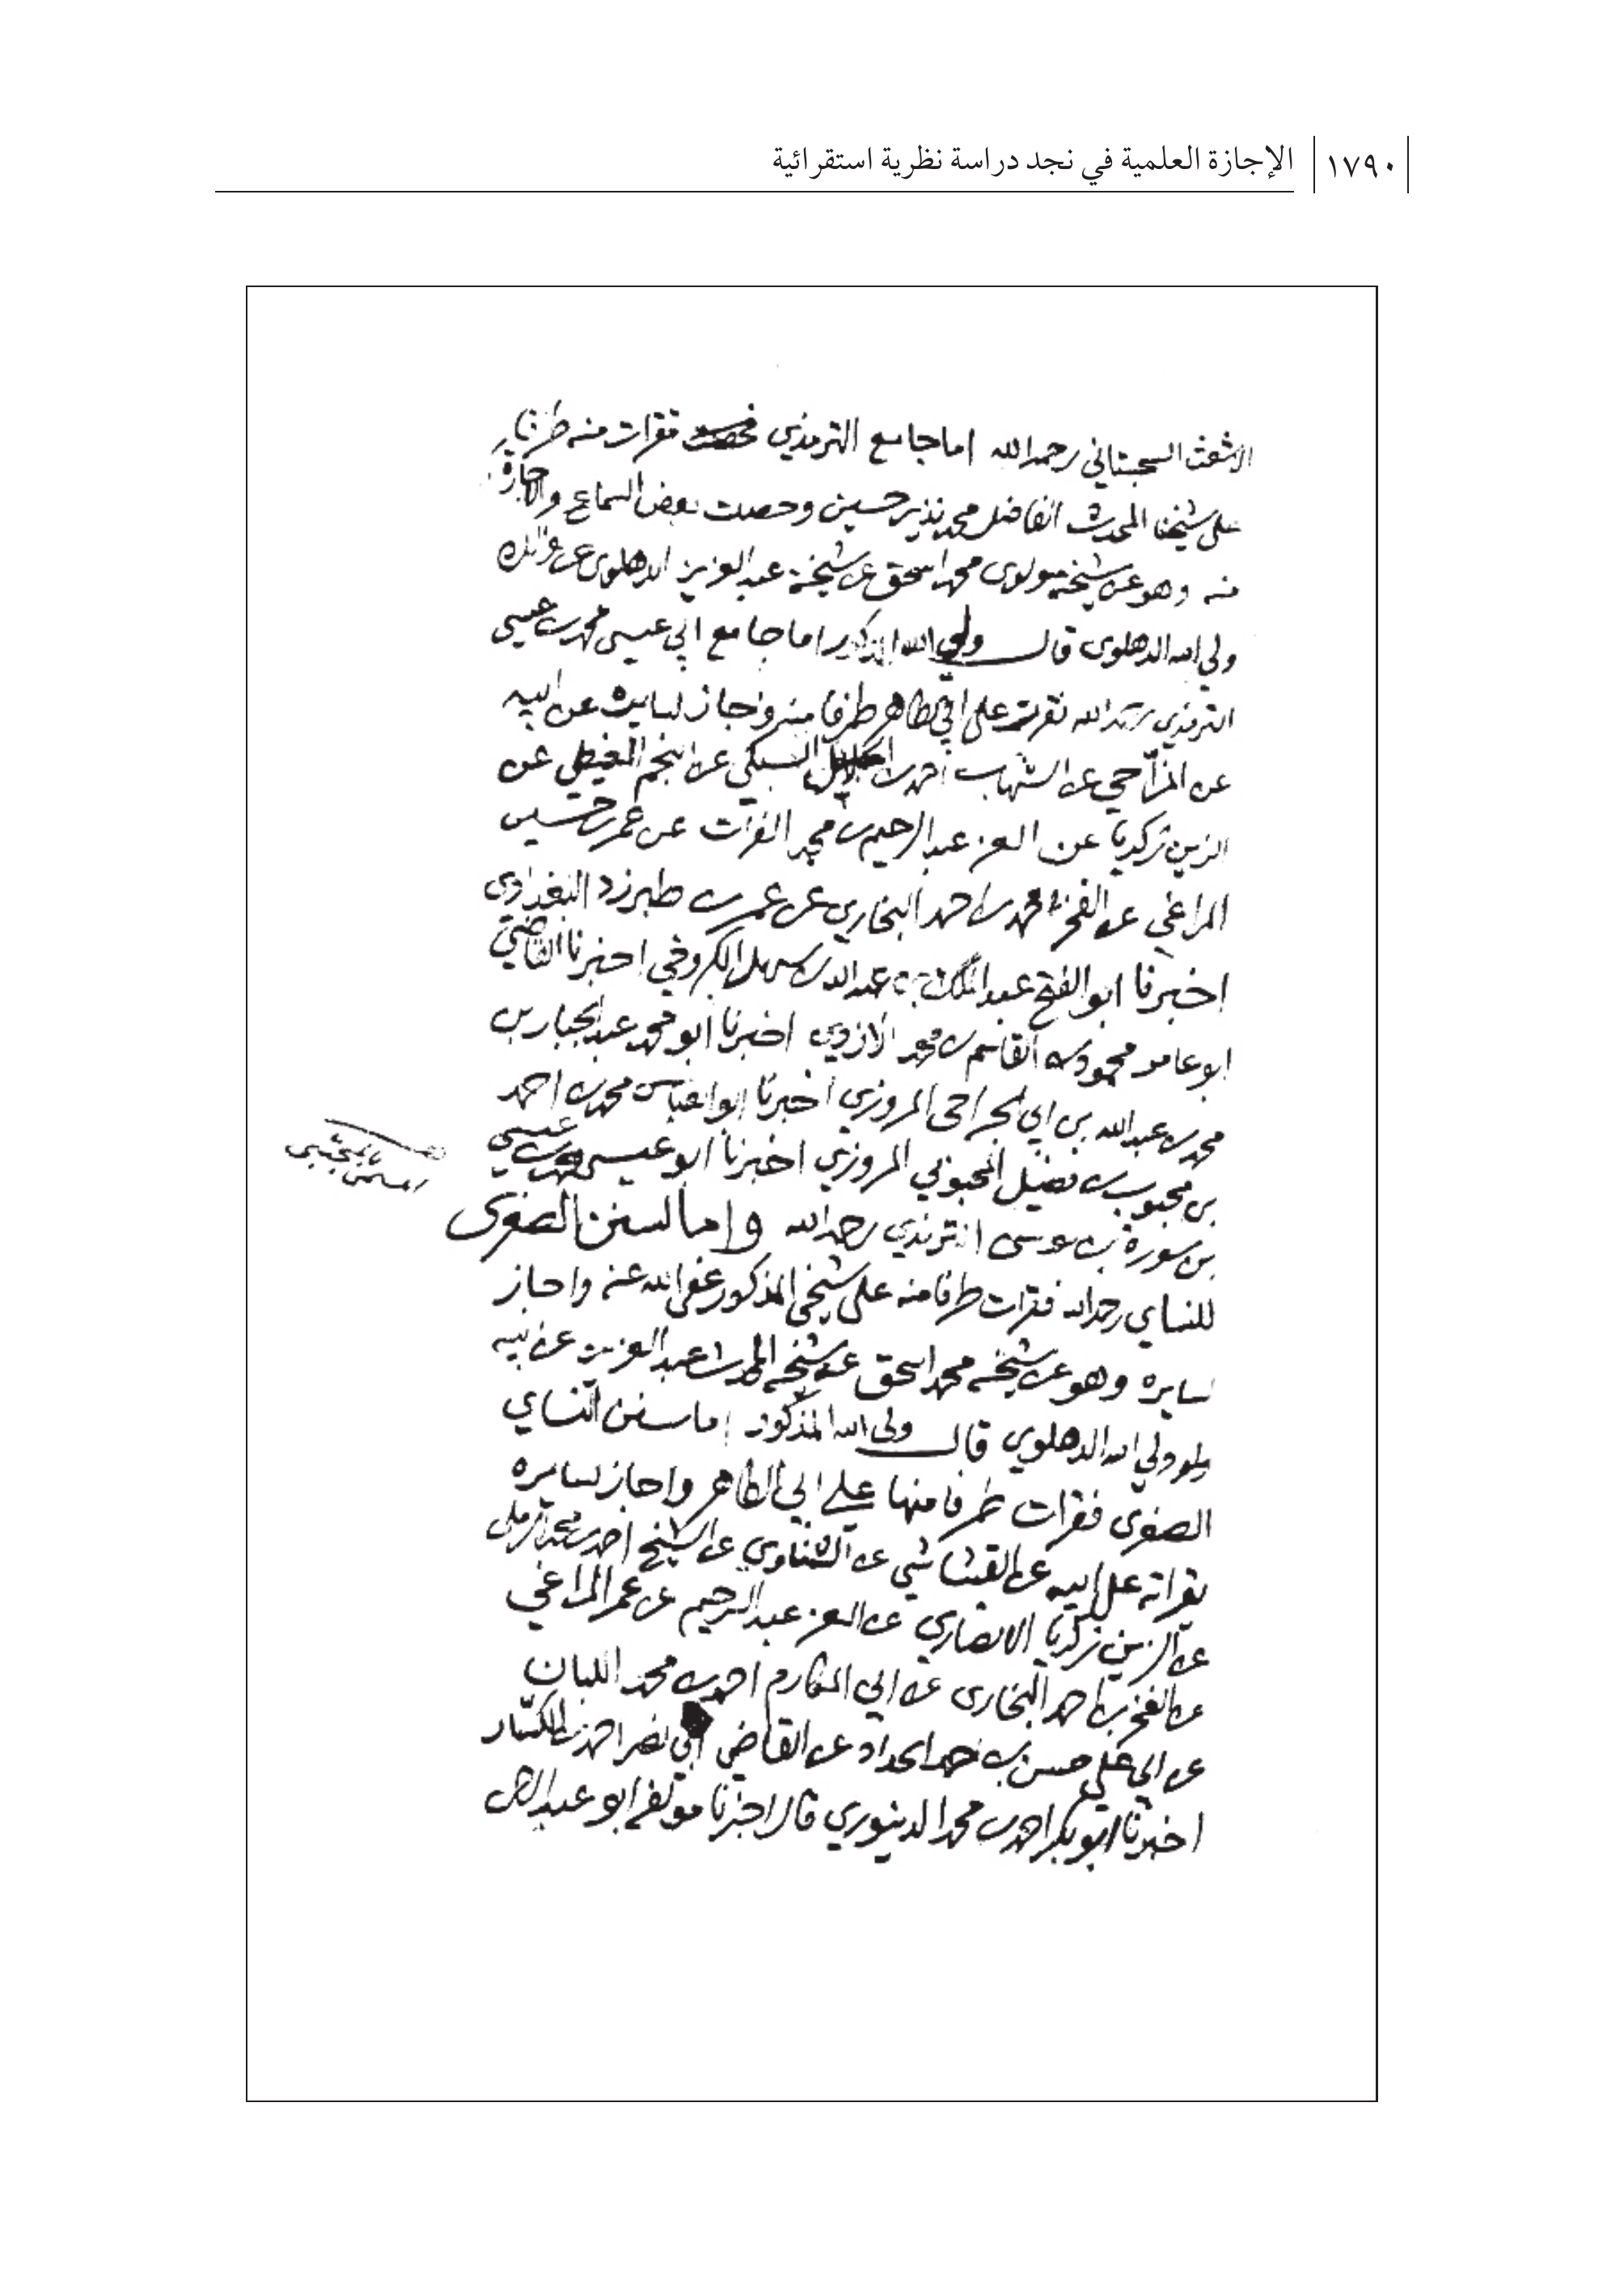 ١٧٩٠ الإجازة العلمية في نجد دراسة نظرية استقرائية
الاشعث السجستاني رحمه الله اما جامع الترمذي فقرات منه طرفا
على شيخنا المحدث الفاضل محمد نذير حسين وحصلت بعض السماع والاجازة
منه وهو عن شيخه مولوى محمد اسحق عن شيخه عبد العزيز الدهلوى عن والده
ولي الله الدهلوى قال ولي الله المذكور اما جامع ابي عيسى محمد بن عيسى
الترمذي رحمه الله فقرات على ابي طاهر طرفا منه واجاز لسايره عن ابيه
عن المزاحي عن الشهاب احمد بن الخليل السبكي عن النجم الغيطي عن
الزين زكريا عن العز عبد الرحيم بن محمد الفرات عن عمر بن حسين
المراغي عن الفخر بن احمد البخاري عن عمر بن طبرزد البغدادى
اخبرنا ابو الفتح عبد الملك بن عبد الله بن سهل الكروخي اخبرنا القاضي
ابو عامر محمود بن القاسم بن محمد الازدي اخبرنا ابو محمد عبد الجبار بن
محمد بن عبد الله بن ابي الجراحى المروزي اخبرنا ابو العباس محمد بن احمد
بن محبوب بن فضيل المحبوبي المروزي اخبرنا ابو عيسى محمد بن عيسى
بن سورة بن موسى الترمذي رحمه الله واما السنن الصغرى
للنساي رحمه الله فقرات طرفا منه على شيخي المذكور عفى الله عنه واجاز
لسايره وهو عن شيخه محمد اسحق عن شيخه المحدث عبد العزيز عن ابيه
ولي الله الدهلوي قال ولى الله المذكور اما سنن النساي
الصغرى فقرات طرفا منها على ابي الطاهر واجاز لسايره
بقراته على ابيه عن القشاشي عن الشناوي عن الشيخ احمد بن محمد الرملي
عن الزين زكريا الانصاري عن العز عبد الرحيم عن عمر المراغي
عن الفخر بن احمد البخارى عن ابي المكارم احمد بن محمد اللبان
عن ابي علي حسن بن احمد الحداد عن القاضي ابي نصر احمد بن الكسار
اخبرنا ابو بكر احمد بن محمد الدينوري قال اخبرنا مولفه ابو عبد الرحمن